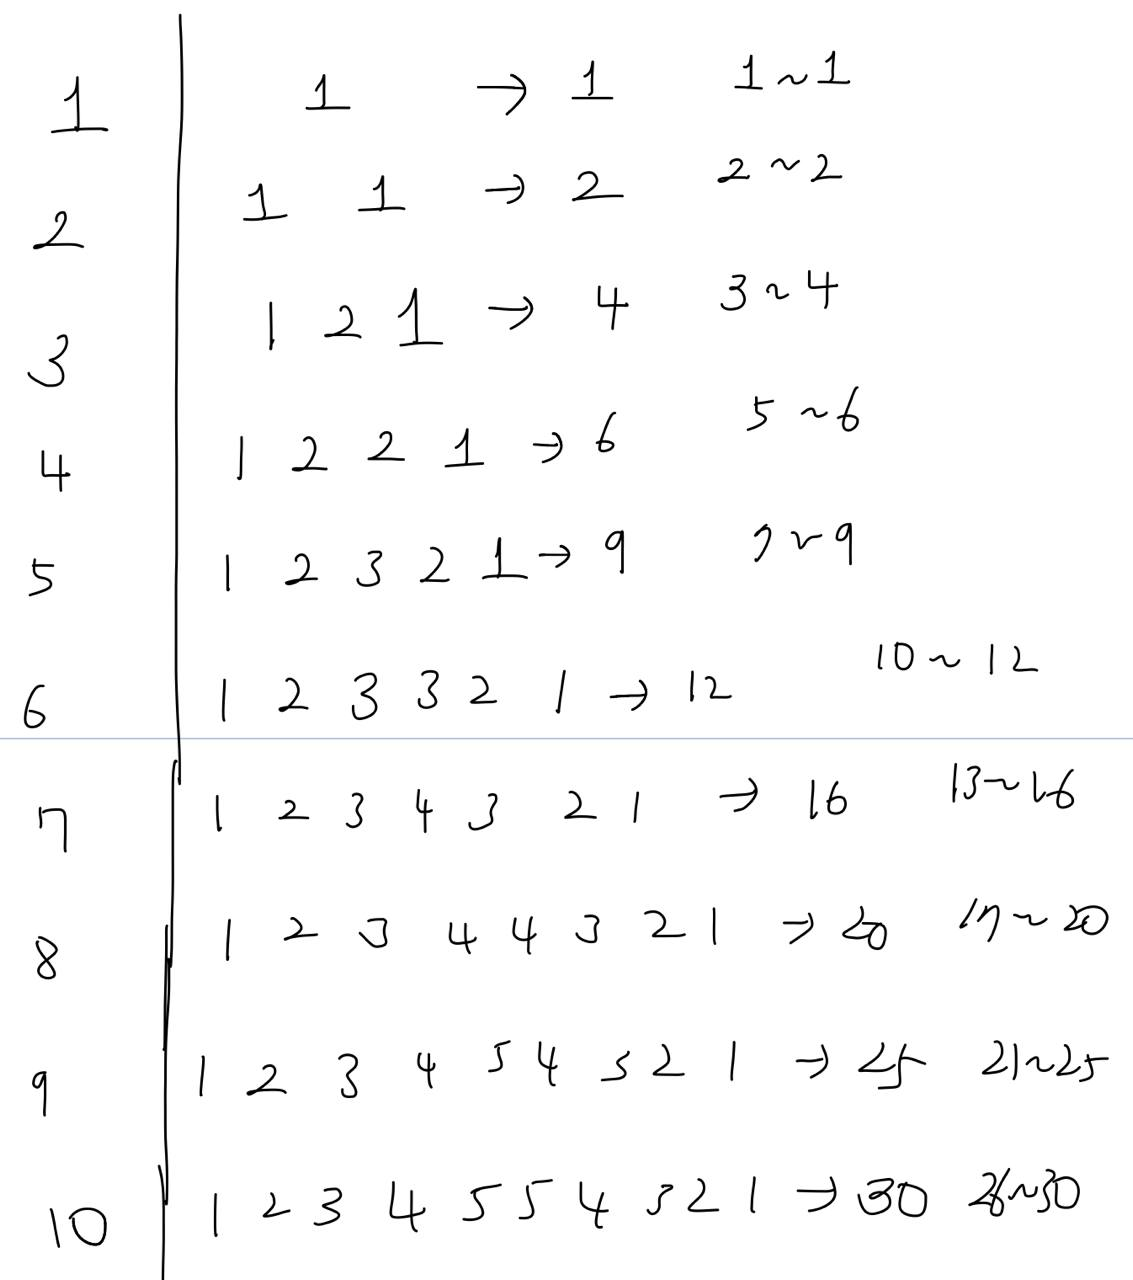 1 1 → 1 1~1
2 1 1 → 2 2~2
3 1 2 1 → 4 3~4
4 1 2 2 1 → 6 5~6
5 1 2 3 2 1 → 9 7~9
6 1 2 3 3 2 1 → 12 10~12
7 1 2 3 4 3 2 1 → 16 13~16
8 1 2 3 4 4 3 2 1 → 20 17~20
9 1 2 3 4 5 4 3 2 1 → 25 21~25
10 1 2 3 4 5 5 4 3 2 1 → 30 26~30